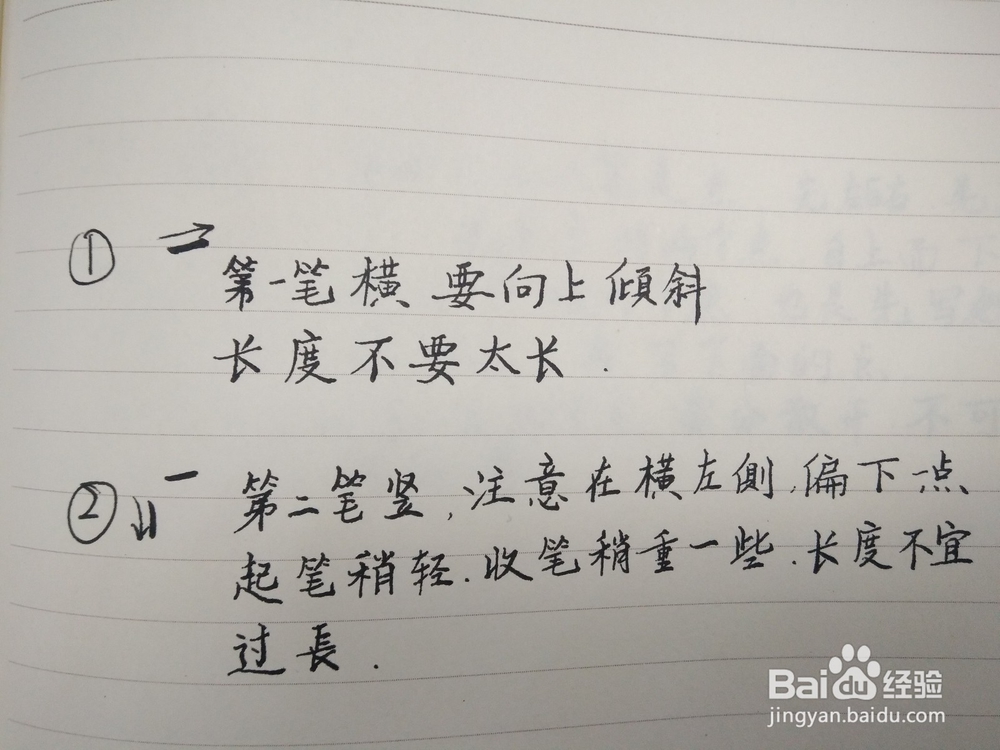 ① 第一笔横 要向上傾斜
长度不要太长.
② 第二笔竖,注意在横左側,偏下一点
起笔稍轻.收笔稍重一些.长度不宜
过長.
Baidu经验
jingyan.baidu.com